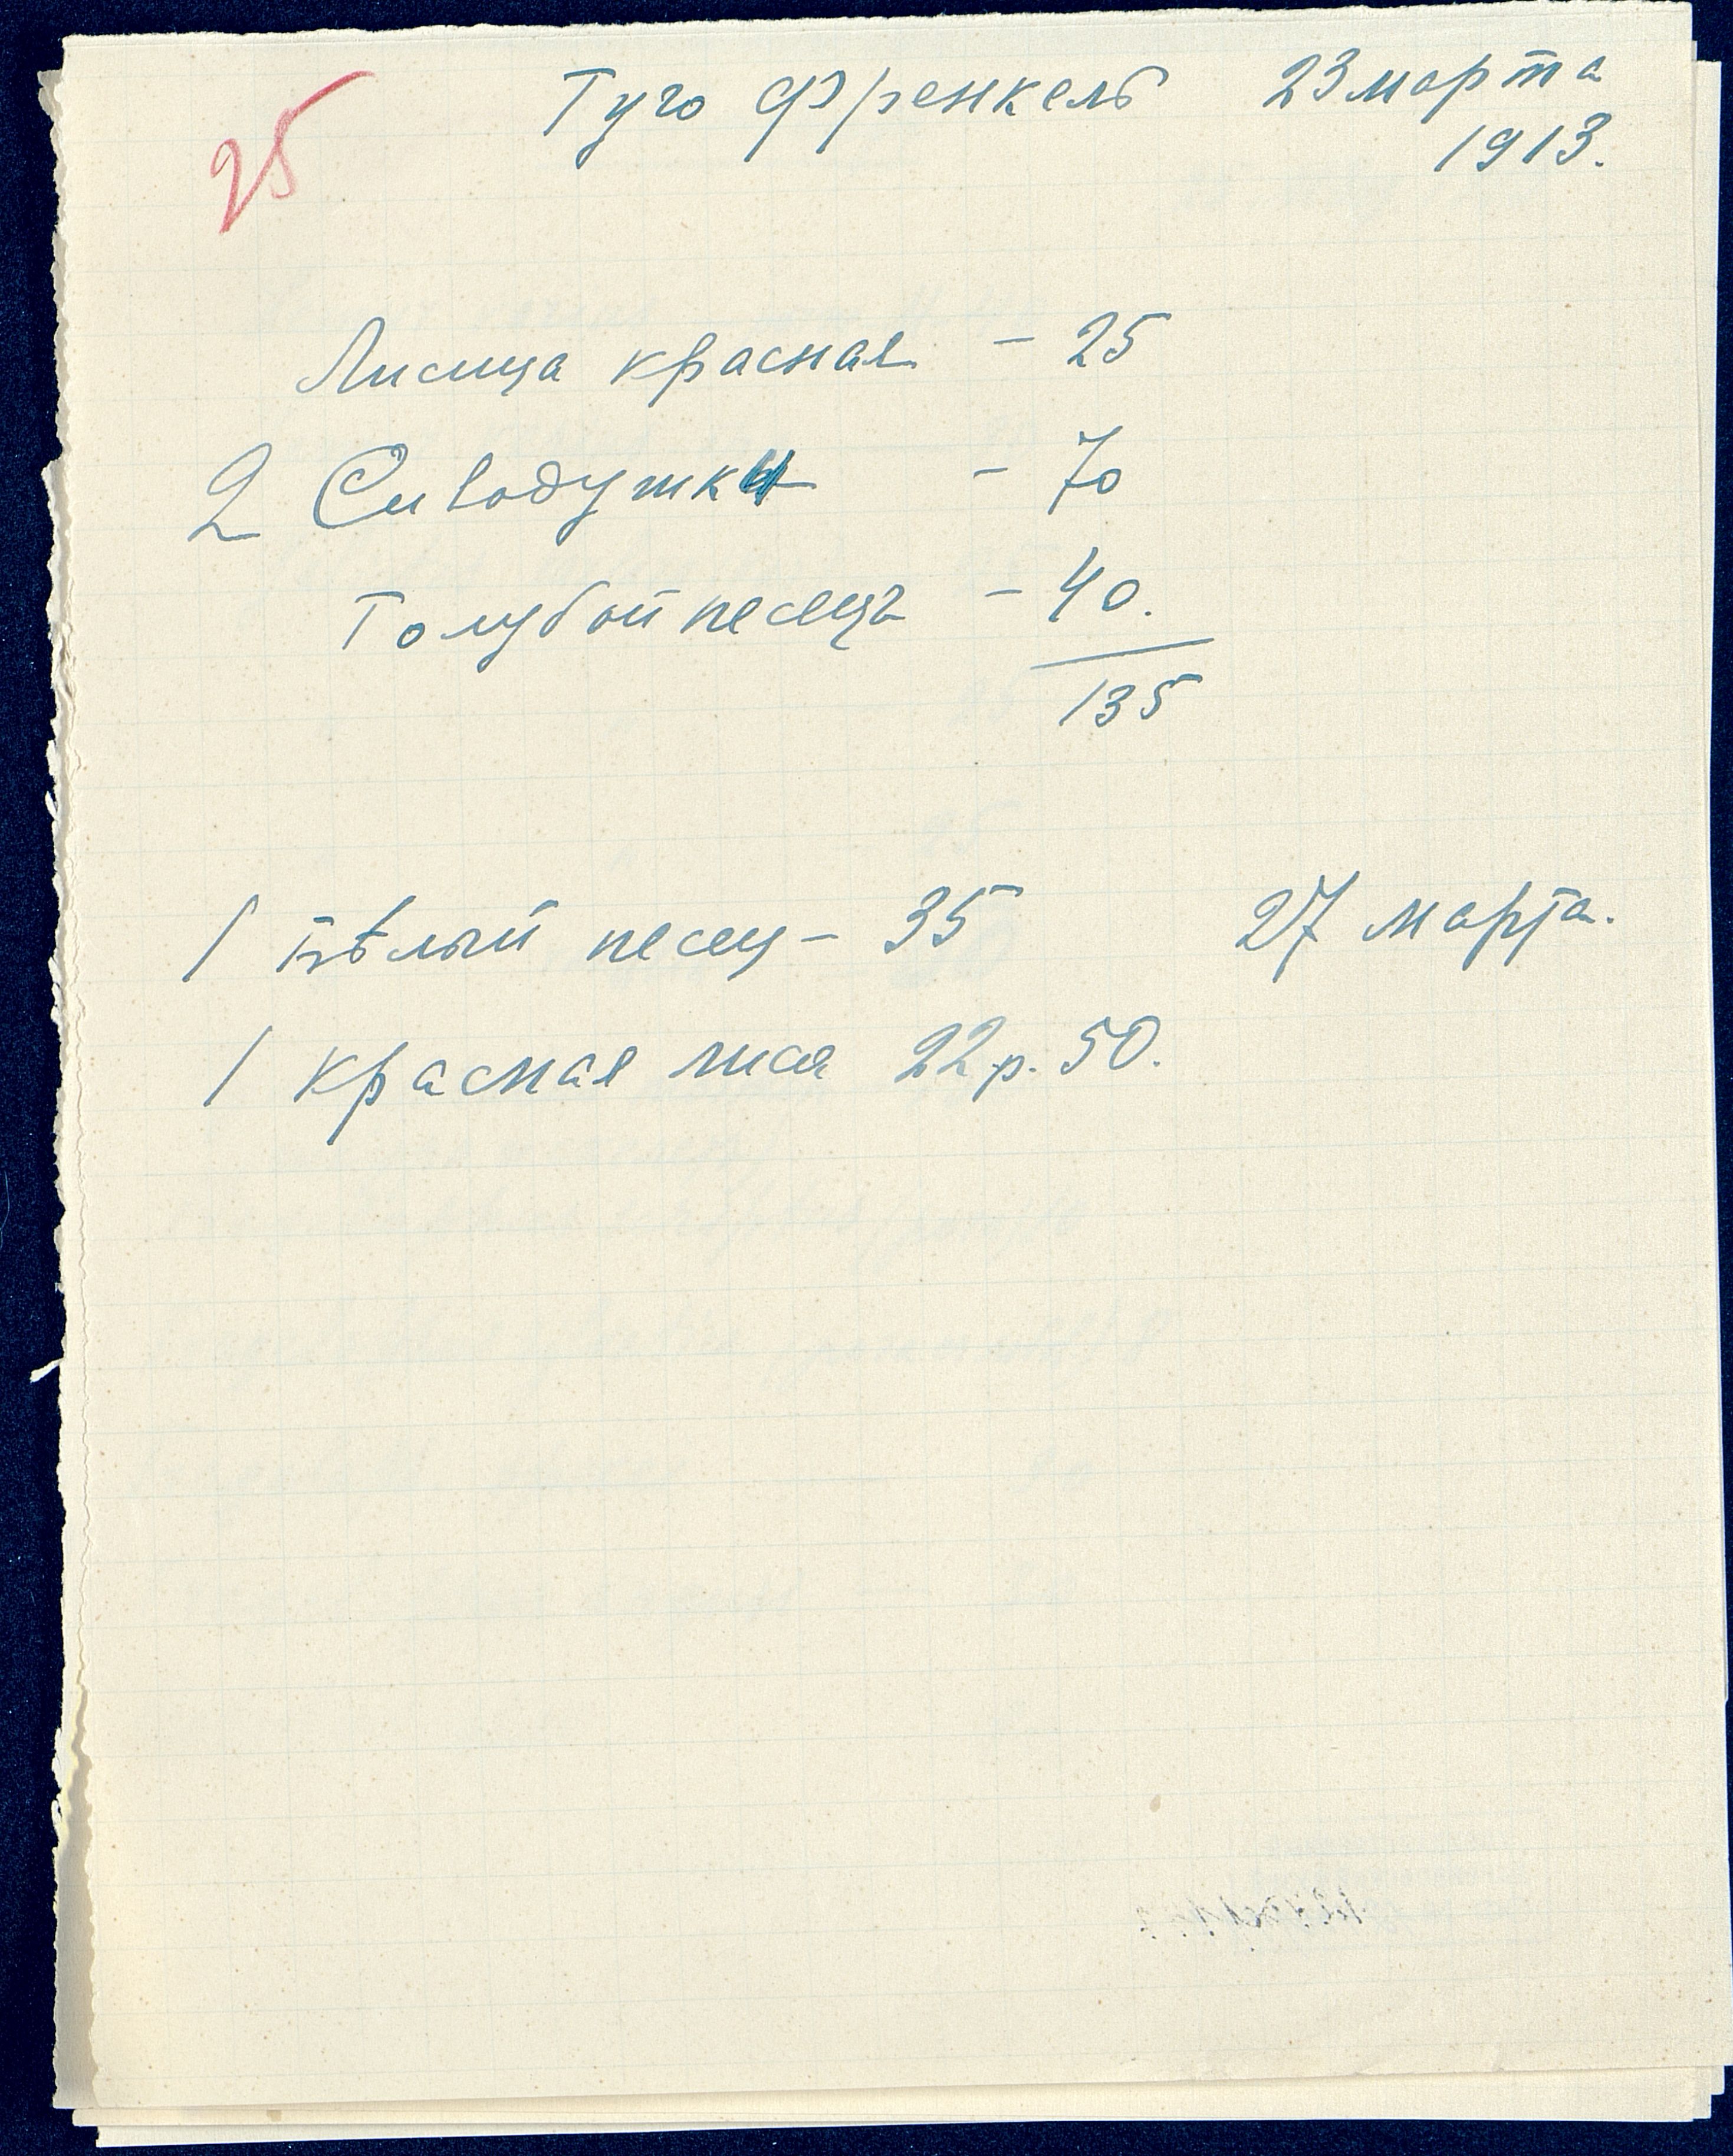 25
Гуго Френкель 23 марта
1913.
Лисица красная - 25
2 Сиводушки - 70
Голубой песецъ - 40.
135
1 бѣлый песец - 35 27 марта.
1 красная лиса 22 р. 50.